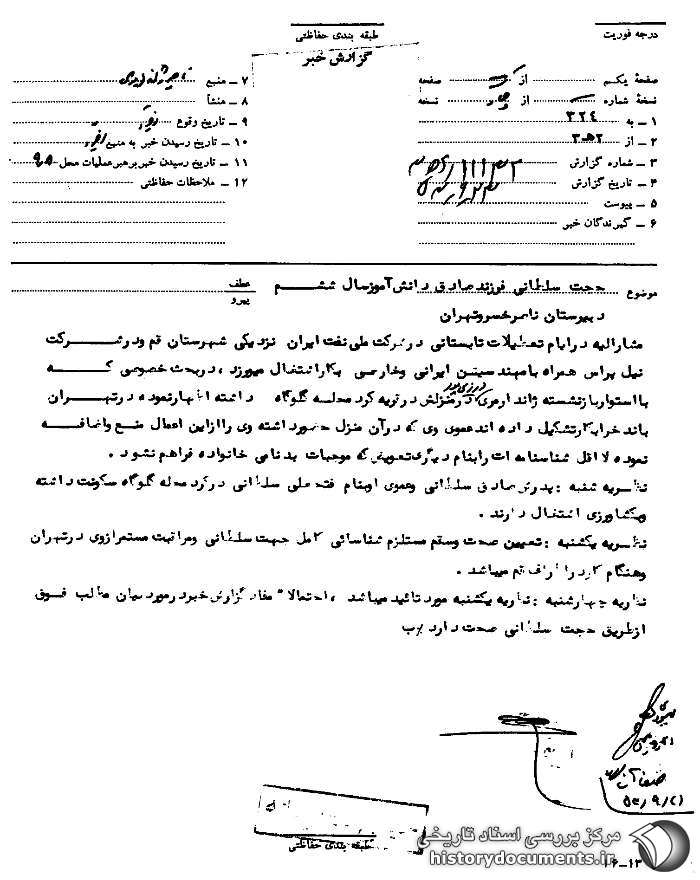 درجه فوریت
طبقه بندی حفاظتی
گزارش خبر
صفحهٔ یکم از صفحه
نسخهٔ شماره از نسخه
۱ ـ به ۳۲۴
۲ ـ از ۳ه۲
۳ ـ شماره گزارش
۴ ـ تاریخ گزارش
۵ ـ پیوست
۶ ـ گیرندگان خبر
۷ ـ منبع
۸ ـ منشأ
۹ ـ تاریخ وقوع
۱۰ ـ تاریخ رسیدن خبر به منبع
۱۱ ـ تاریخ رسیدن خبر برهبر عملیات محل
۱۲ ـ ملاحظات حفاظتی
موضوع حجت سلطانی فرزند صادق دانش آموز سال ششم
عطف
پیرو
دبیرستان ناصر خسرو تهران
مشارالیه در ایام تعطیلات تابستانی در شرکت ملی نفت ایران نزدیکی شهرستان قم و در شرکت
نیل پراس همراه با مهندسین ایرانی و خارجی بکار اشتغال میورزد ، در بحث خصوصی که
با استوار بازنشسته ژاندارمری در منزلش در قریه کرد محله گلوگاه داشته اظهار نموده در تهران
باند خرابکار تشکیل داده اند عموی وی که در آن منزل حضور داشته وی را از این اعمال منع و اضافه
نموده لااقل شناسنامه ات را بنام دیگری تعویض که موجبات بدنامی خانواده فراهم نشود .
نظریه شنبه : پدرش صادق سلطانی و عموی او بنام فتحعلی سلطانی در کرد محله گلوگاه سکونت داشته
و بکشاورزی اشتغال دارند .
نظریه یکشنبه : تعیین صحت و سقم مستلزم شناسائی کامل حجت سلطانی و مراقبت مستمر از وی در تهران
و هنگام کار در اطراف قم میباشد .
نظریه چهارشنبه : نظریه یکشنبه مورد تائید میباشد ، احتمالا" مفاد گزارش خبر در مورد بیان مطالب فوق
از طریق حجت سلطانی صحت دارد
۵۳/۹/۲۱
طبقه بندی حفاظتی
۱۶-۱۳
مرکز بررسی اسناد تاریخی
historydocuments.ir